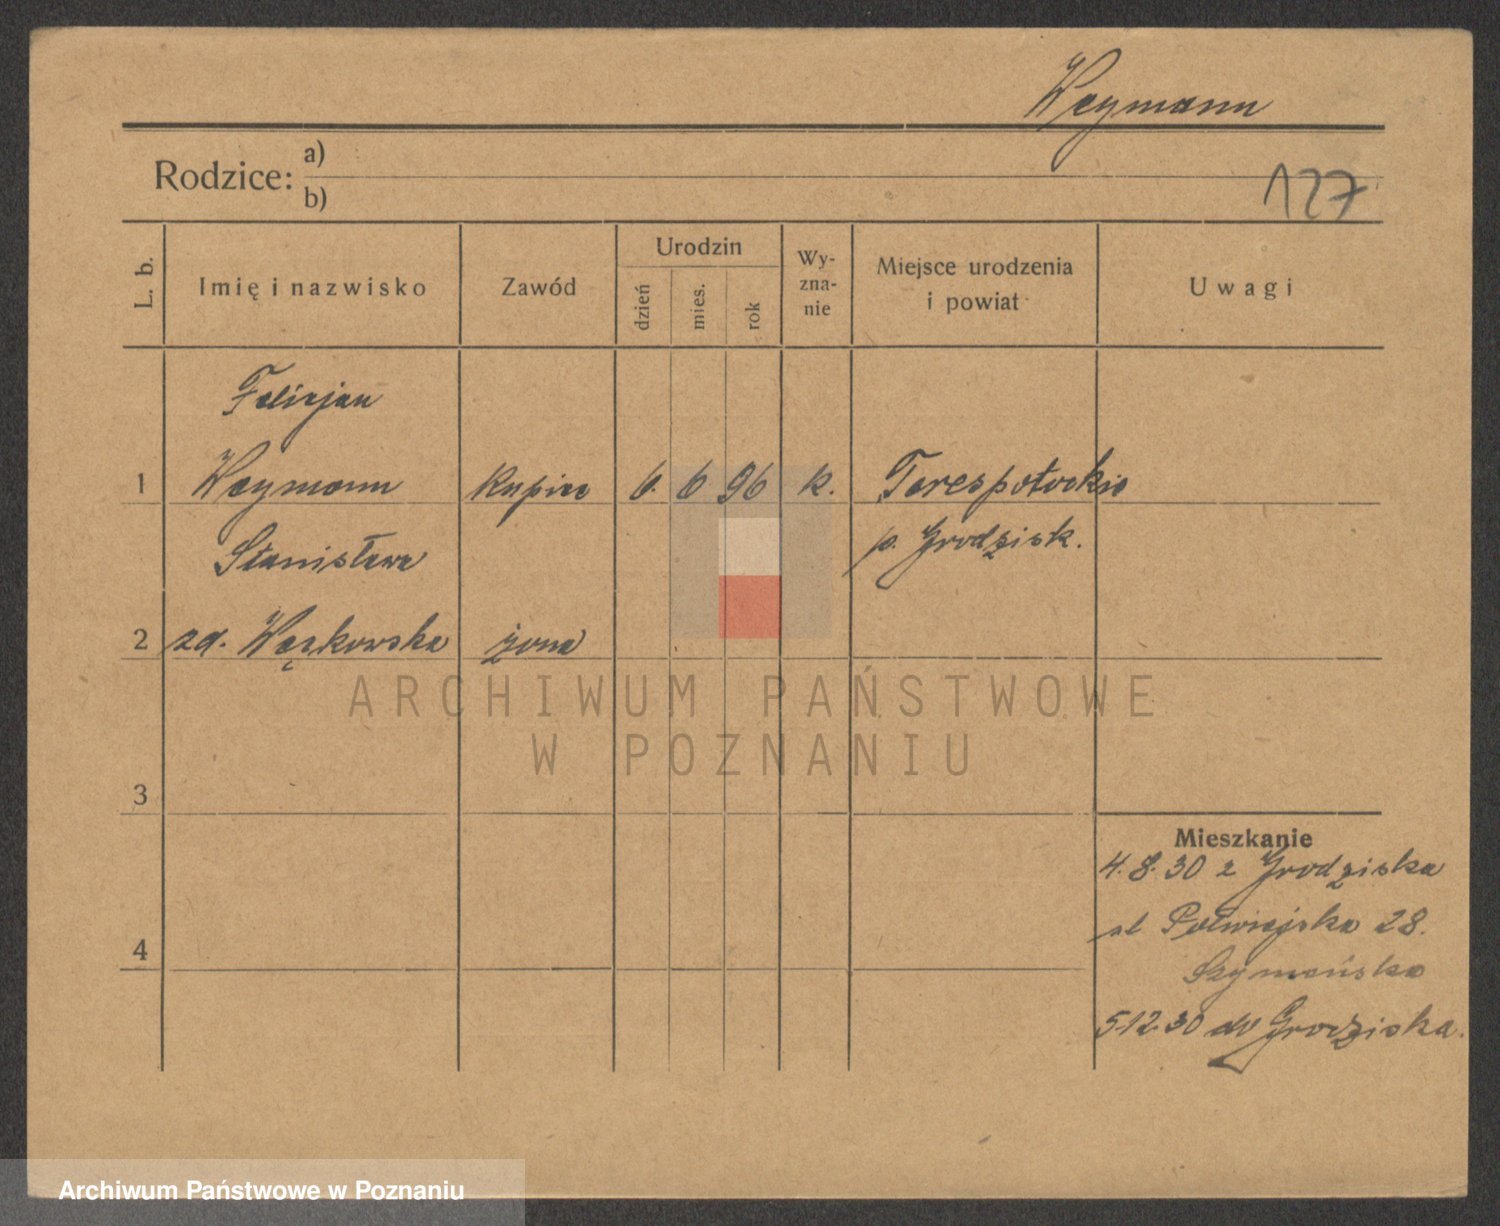 Weymann
Rodzice:
a)
b)
127
L. b.
Imię i nazwisko
Zawód
Urodzin
dzień
mies.
rok
Wy-
zna-
nie
Miejsce urodzenia
i powiat
Uwagi
Felicjan
1 Weymann kupiec 6. 6 96 k. Terespotockie
Stanisława p. Grodzisk.
2 zd. Węckowska żona
ARCHIWUM PAŃSTWOWE
W POZNANIU
3
Mieszkanie
4. 8. 30 z Grodziska
ul Półwiejska 28.
4
Szymańska
5.12.30 do Grodziska.
Archiwum Państwowe w Poznaniu